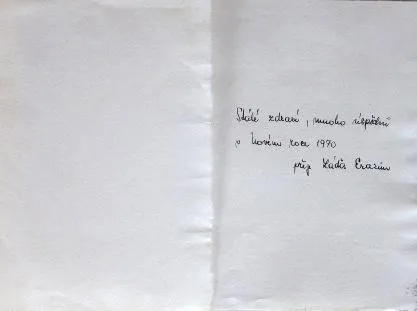 Stálé zdraví, mnoho úspěchů
v Novém roce 1970
přeje Láďa Erazim